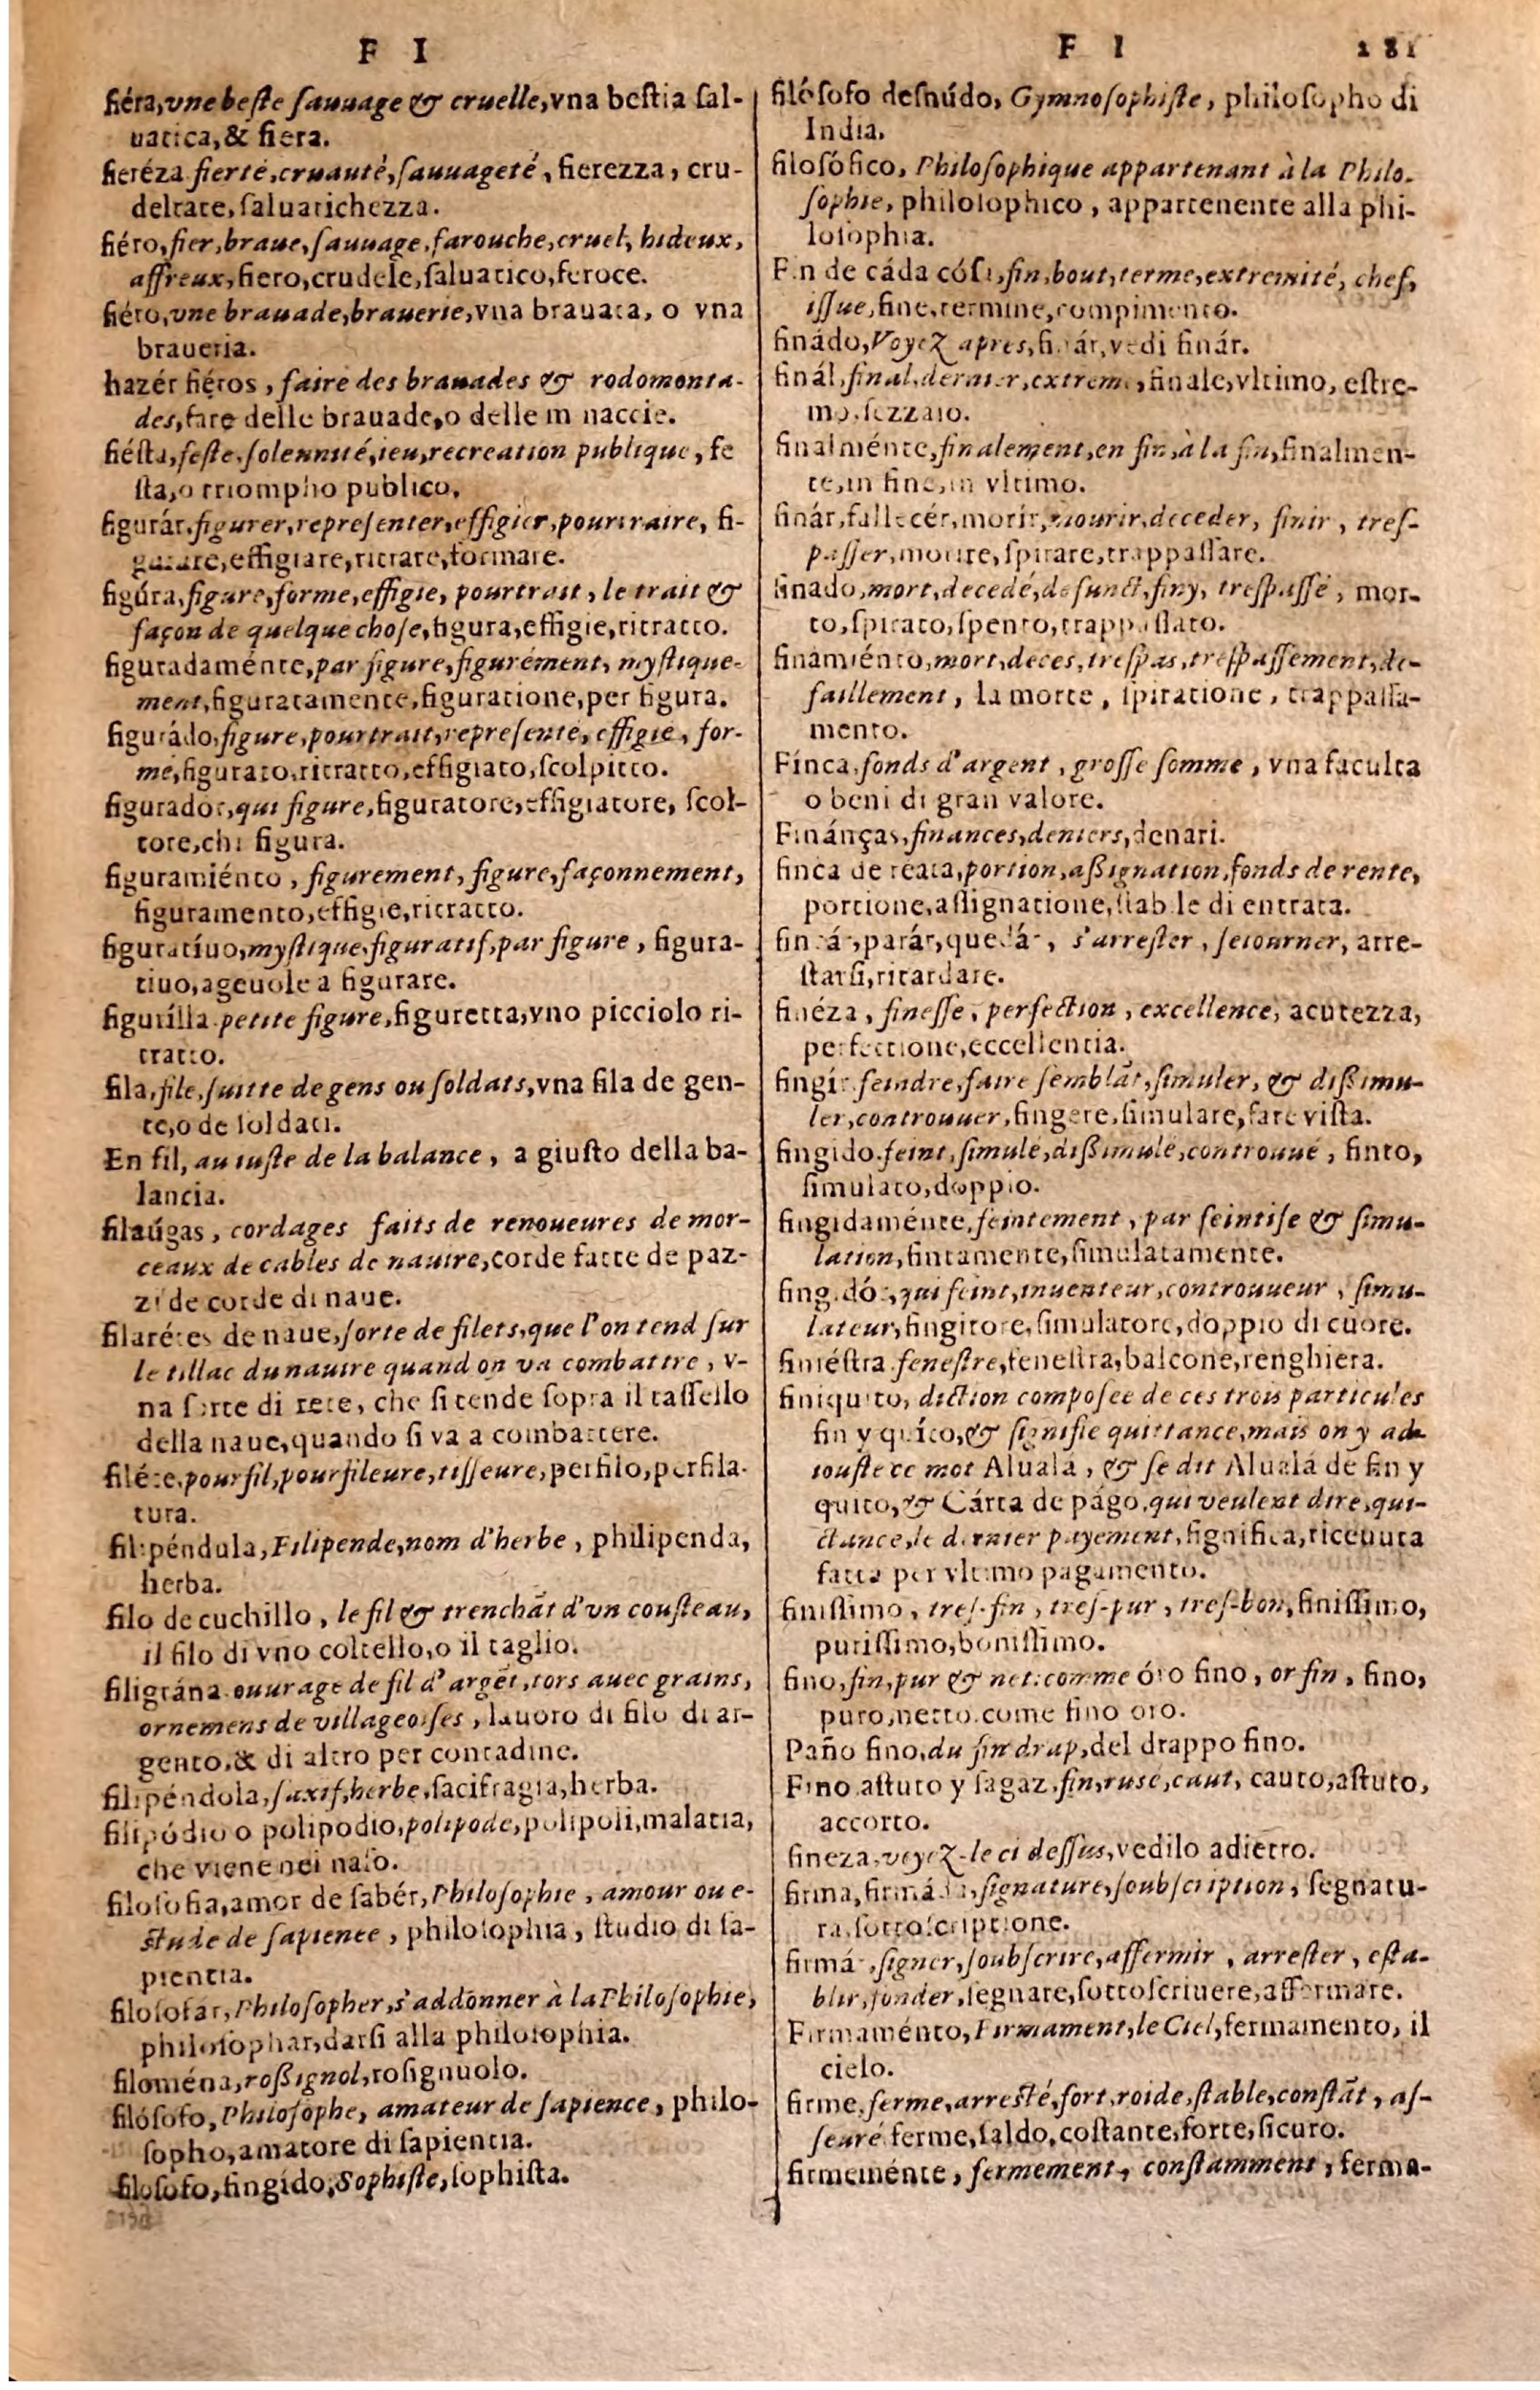 F I
fiéra, vne beste sauuage & cruelle, vna bestia sal-
uatica, & fiera.
fieréza fierté, cruauté, sauuageté, fierezza, cru-
deltate, saluatichezza.
fiéro, fier, braue, sauuage, farouche, cruel, hideux,
affreux, fiero, crudele, saluatico, feroce.
fiéro, vne brauade, brauerie, vna brauata, o vna
braueria.
hazér fiéros, faire des brauades & rodomonta-
des, fare delle brauade, o delle minaccie.
fiésta, feste, solennité, ieu, recreation publique, fe
sta, o triompho publico.
figurár, figurer, representer, effigier, pourtraire, fi-
gurare, effigiare, ritrare, formare.
figúra, figure, forme, effigie, pourtrait, le trait &
façon de quelque chose, figura, effigie, ritratto.
figuradaménte, par figure, figurément, mystique-
ment, figuratamente, figuratione, per figura.
figurádo, figure, pourtrait, representé, effigie, for-
mé, figurato, ritratto, effigiato, scolpitto.
figurador, qui figure, figuratore, effigiatore, scol-
tore, chi figura.
figuramiénto, figurement, figure, façonnement,
figuramento, effigie, ritratto.
figuratíuo, mystique, figuratif, par figure, figura-
tiuo, ageuole a figurare.
figurílla petite figure, figuretta, vno picciolo ri-
tratto.
fila, file, suitte de gens ou soldats, vna fila de gen-
te, o de soldati.
En fil, au iuste de la balance, a giusto della ba-
lancia.
filaúgas, cordages faits de renoueures de mor-
ceaux de cables de nauire, corde fatte de paz-
zi de corde di naue.
filarétes de naue, sorte de filets, que l'on tend sur
le tillac du nauire quand on va combattre, v-
na sorte di rete, che si tende sopra il tassello
della naue, quando si va a combattere.
filéte, pourfil, pourfileure, tisseure, perfilo, perfila-
tura.
filipéndula, Filipende, nom d'herbe, philipenda,
herba.
filo de cuchillo, le fil & trenchãt d'vn cousteau,
il filo di vno coltello, o il taglio.
filigrána ouurage de fil d'argẽt, tors auec grains,
ornemens de villageoises, lauoro di filo di ar-
gento, & di altro per contadine.
filipéndola, saxif, herbe, sacifragia, herba.
filipódio o polipodio, polipode, polipoli, malatia,
che viene nei naso.
filosofia, amor de sabér, Philosophie, amour ou e-
stude de sapience, philosophia, studio di sa-
pientia.
filosofár, Philosopher, s'addonner à la Philosophie,
philosophar, darsi alla philosophia.
filoména, roßignol, rosignuolo.
filósofo, Philosophe, amateur de sapience, philo-
sopho, amatore di sapientia.
filosofo, fingído, Sophiste, sophista.
F I 181
filósofo desnúdo, Gymnosophiste, philosopho di
India.
filosófico, Philosophique appartenant à la Philo-
sophie, philosophico, appartenente alla phi-
losophia.
Fin de cáda cósa, fin, bout, terme, extremité, chef,
issue, fine, termine, compimento.
finádo, Voyez apres, finár, vedi finár.
finál, final, dernier, extreme, finale, vltimo, estre-
mo, sezzaio.
finalménte, finalement, en fin, à la fin, finalmen-
te, in fine, in vltimo.
finár, fallecér, morír, mourir, deceder, finir, tres-
passer, morire, spirare, trappassare.
finado, mort, decedé, defunct, finy, trespassé, mor-
to, spirato, spento, trappassato.
finamiénto, mort, deces, trespas, trespassement, de-
faillement, la morte, spiratione, trappassa-
mento.
Fínca, fonds d'argent, grosse somme, vna faculta
o beni di gran valore.
Finánças, finances, deniers, denari.
finca de reata, portion, aßignation, fonds de rente,
portione, assignatione, stabile di entrata.
fincár, parár, quedár, s'arrester, setourner, arre-
starsi, ritardare.
finéza, finesse, perfection, excellence, acutezza,
perfettione, eccellentia.
fingír feindre, faire semblãt, simuler, & dißimu-
ler, controuuer, fingere, simulare, fare vista.
fingido feint, simulé, dißimulé, controuué, finto,
simulato, doppio.
fingidaménte, feintement, par feintise & simu-
lation, fintamente, simulatamente.
fingidór, qui feint, inuenteur, controuueur, simu-
lateur, fingitore, simulatore, doppio di cuore.
finiéstra fenestre, fenestra, balcone, renghiera.
finiquito, diction composee de ces trois particules
fin y quíto, & signifie quittance, mais on y ad-
iouste ce mot Aluala, & se dit Alualá de fin y
quito, & Cárta de págo, qui veulent dire, qui-
ctance, le dernier payement, significa, riceuuta
fatta per vltimo pagamento.
finissimo, tres-fin, tres-pur, tres-bon, finissimo,
purissimo, bonissimo.
fino, fin, pur & net: comme óro fino, or fin, fino,
puro, netto. come fino oro.
Paño fino, du fin drap, del drappo fino.
Fino astuto y sagaz, fin, ruse, caut, cauto, astuto,
accorto.
fineza, voyez-le ci dessus, vedilo adietro.
firma, firmáda, signature, soubscription, segnatu-
ra, sottoscriptione.
firmár, signer, soubscrire, affermir, arrester, esta-
blir, fonder, segnare, sottoscriuere, affermare.
Firmaménto, Firmament, le Ciel, fermamento, il
cielo.
firme, ferme, arresté, fort, roide, stable, constãt, as-
seuré ferme, saldo, costante, forte, sicuro.
firmeménte, fermement, constamment, ferma-